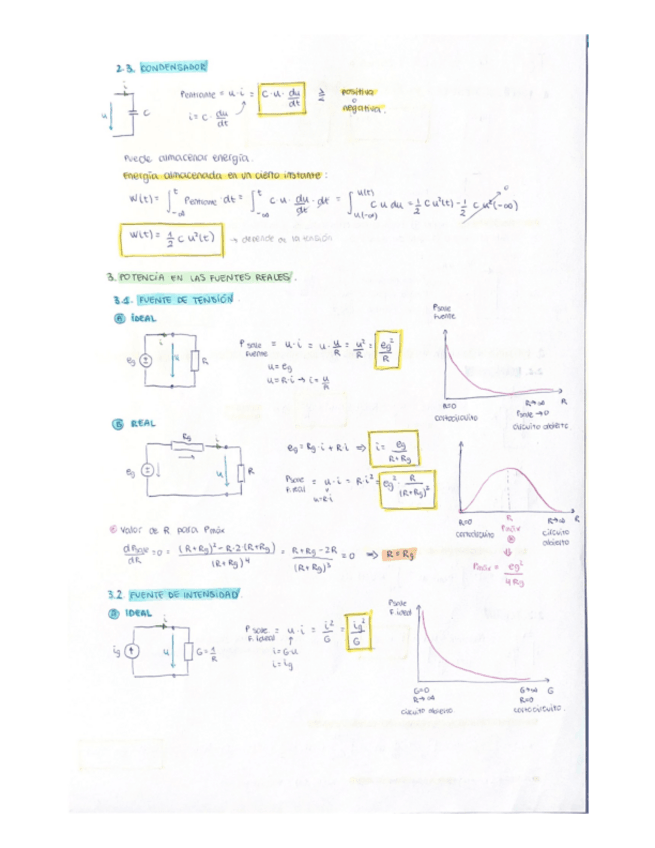 2.3. CONDENSADOR
i
u
C
Pentrante = u·i = C·u·du/dt
positiva
o
negativa.
i = C·du/dt
Puede almacenar energía.
Energía almacenada en un cierto instante:
W(t) = ∫_{-∞}^{t} Pentrante·dt = ∫_{-∞}^{t} C u·du/dt·dt = ∫_{u(-∞)}^{u(t)} C u du = 1/2 C u²(t) - 1/2 C u²(-∞) → 0
W(t) = 1/2 C u²(t) → depende de la tensión
3. POTENCIA EN LAS FUENTES REALES.
3.1. FUENTE DE TENSIÓN
A IDEAL
eg
i
u
R
P sale fuente = u·i = u·u/R = u²/R = eg²/R
u = eg
u = R·i → i = u/R
Psale
Fuente
R=0
cortocircuito
R→∞
R
Psale → 0
circuito abierto
B REAL
Rg
i
eg
u
R
eg = Rg·i + R·i ⇒ i = eg/(R+Rg)
Psale f.real = u·i = R·i² = eg²·R/(R+Rg)²
u=R·i
R=0
cortocircuito
R
Pmáx
R→∞
R
circuito
abierto
Pmáx = eg²/4Rg
valor de R para Pmáx
dPsale/dR = 0 = ((R+Rg)² - R·2·(R+Rg))/(R+Rg)⁴ = (R+Rg-2R)/(R+Rg)³ = 0 ⇒ R = Rg
3.2. FUENTE DE INTENSIDAD
IDEAL
ig
i
u
G = 1/R
P sale F. ideal = u·i = i²/G = ig²/G
i = G·u
i = ig
Psale
F. ideal
G=0
R→∞
circuito abierto
G→∞
G
R=0
cortocircuito.